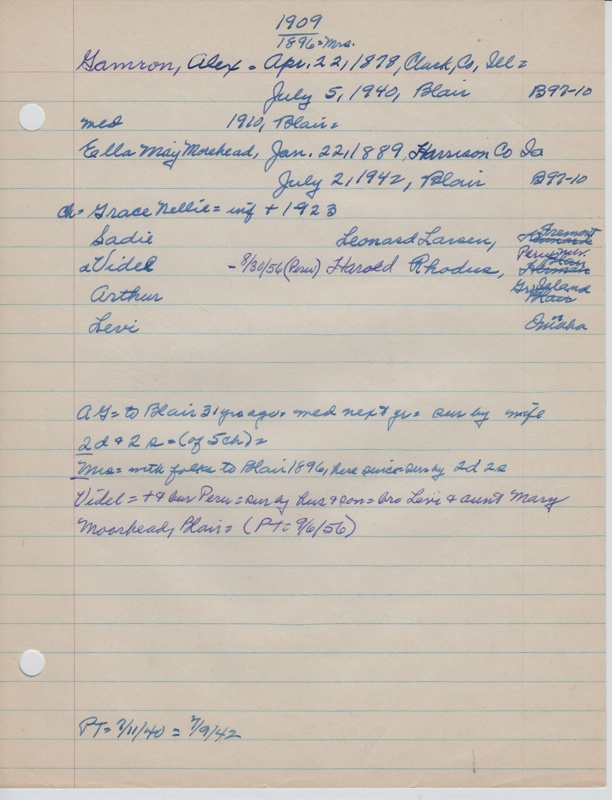 1909
1896=Mrs.
Gamron, Alex = Apr. 22, 1878, Clark, Co, Ill =
July 5, 1940, Blair B97-10
med 1910, Blair =
Ella May Morehead, Jan. 22, 1889, Harrison Co Ia
July 2, 1942, Blair B97-10
ch = Grace Nellie = inf + 1923
Sadie Leonard Larsen, Fremont
Videl - 8/30/56 (Peru) Harold Rhodus, Peru
Gr. Island
Arthur Blair
Levi Omaha
AG = to Blair 31 yrs ago = med next yr = sur by wife
2 d & 2 s = (of 5 ch) =
Mrs = with folks to Blair 1896, here since = sur by 2d 2s
Videl = + & bur Peru = sur by hus & son = bro Levi & aunt Mary
Moorhead, Blair = (PT = 9/6/56)
PT = 7/11/40 = 7/9/42